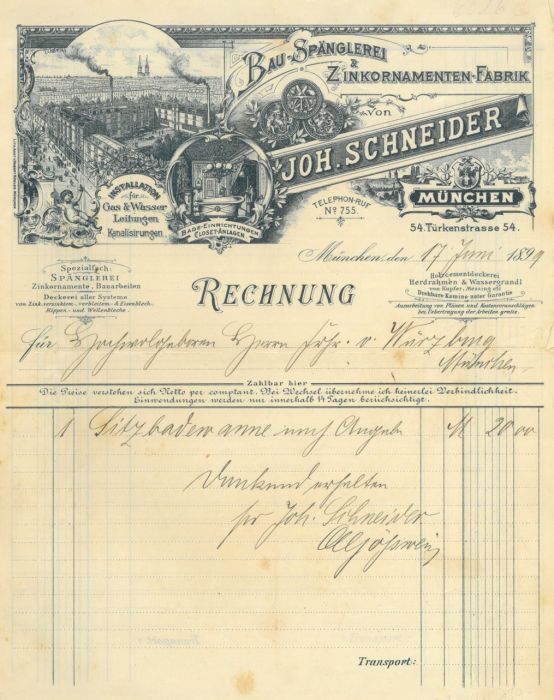 Bau-Spänglerei
&
Zinkornamenten-Fabrik
von
Joh. Schneider
München
54. Türkenstrasse 54.
Telephon-Ruf
No 755.
Installation
für
Gas & Wasser
Leitungen
Kanalisirungen.
Bade-Einrichtungen
Closet-Anlagen.
München, den 17 Juni 1899
Spezialfach:
Spänglerei
Zinkornamente, Bauarbeiten
Deckerei aller Systeme
von Zink, verzinktem, verbleitem- & Eisenblech.
Rippen- und Wellenbleche.
Rechnung
Holzcementdeckerei
Herdrahmen & Wassergrandl
von Kupfer, Messing etc
Dunkbare Kamine unter Garantie
Ausarbeitung von Plänen und Kostenvoranschlägen
bei Uebertragung der Arbeiten gratis.
für Hochwolgeboren Herrn Frhr. v. Würzburg
München.
Zahlbar hier
Die Preise verstehen sich Netto per comptant. Bei Wechsel übernehme ich keinerlei Verbindlichkeit.
Einwendungen werden nur innerhalb 14 Tagen berücksichtigt.
1 Sitzbadewanne nach Angabe M 20 00
Dankend erhalten
per Joh. Schneider
Transport: